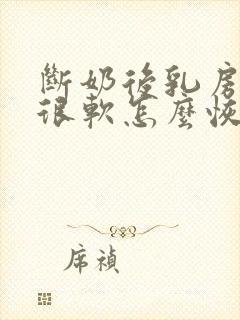 斷奶後乳房
很軟怎麼恢
席禎